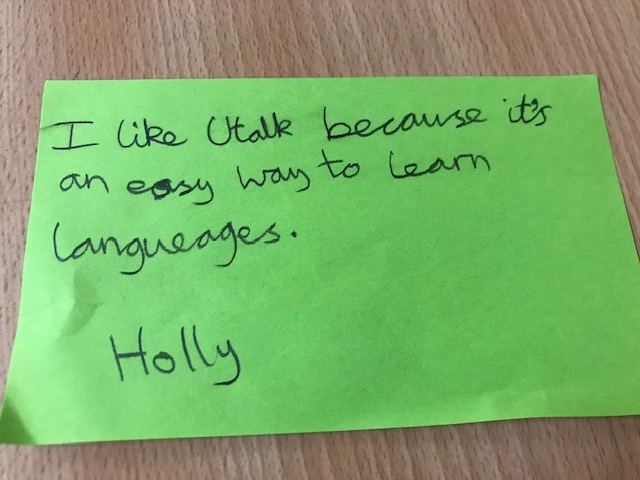 I like Utalk because it's
an easy way to learn
langueages.
Holly